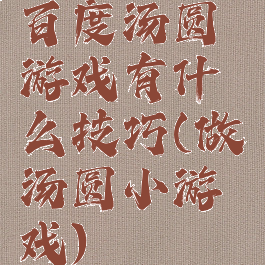 百度汤圆
游戏有什
么技巧(做
汤圆小游
戏)